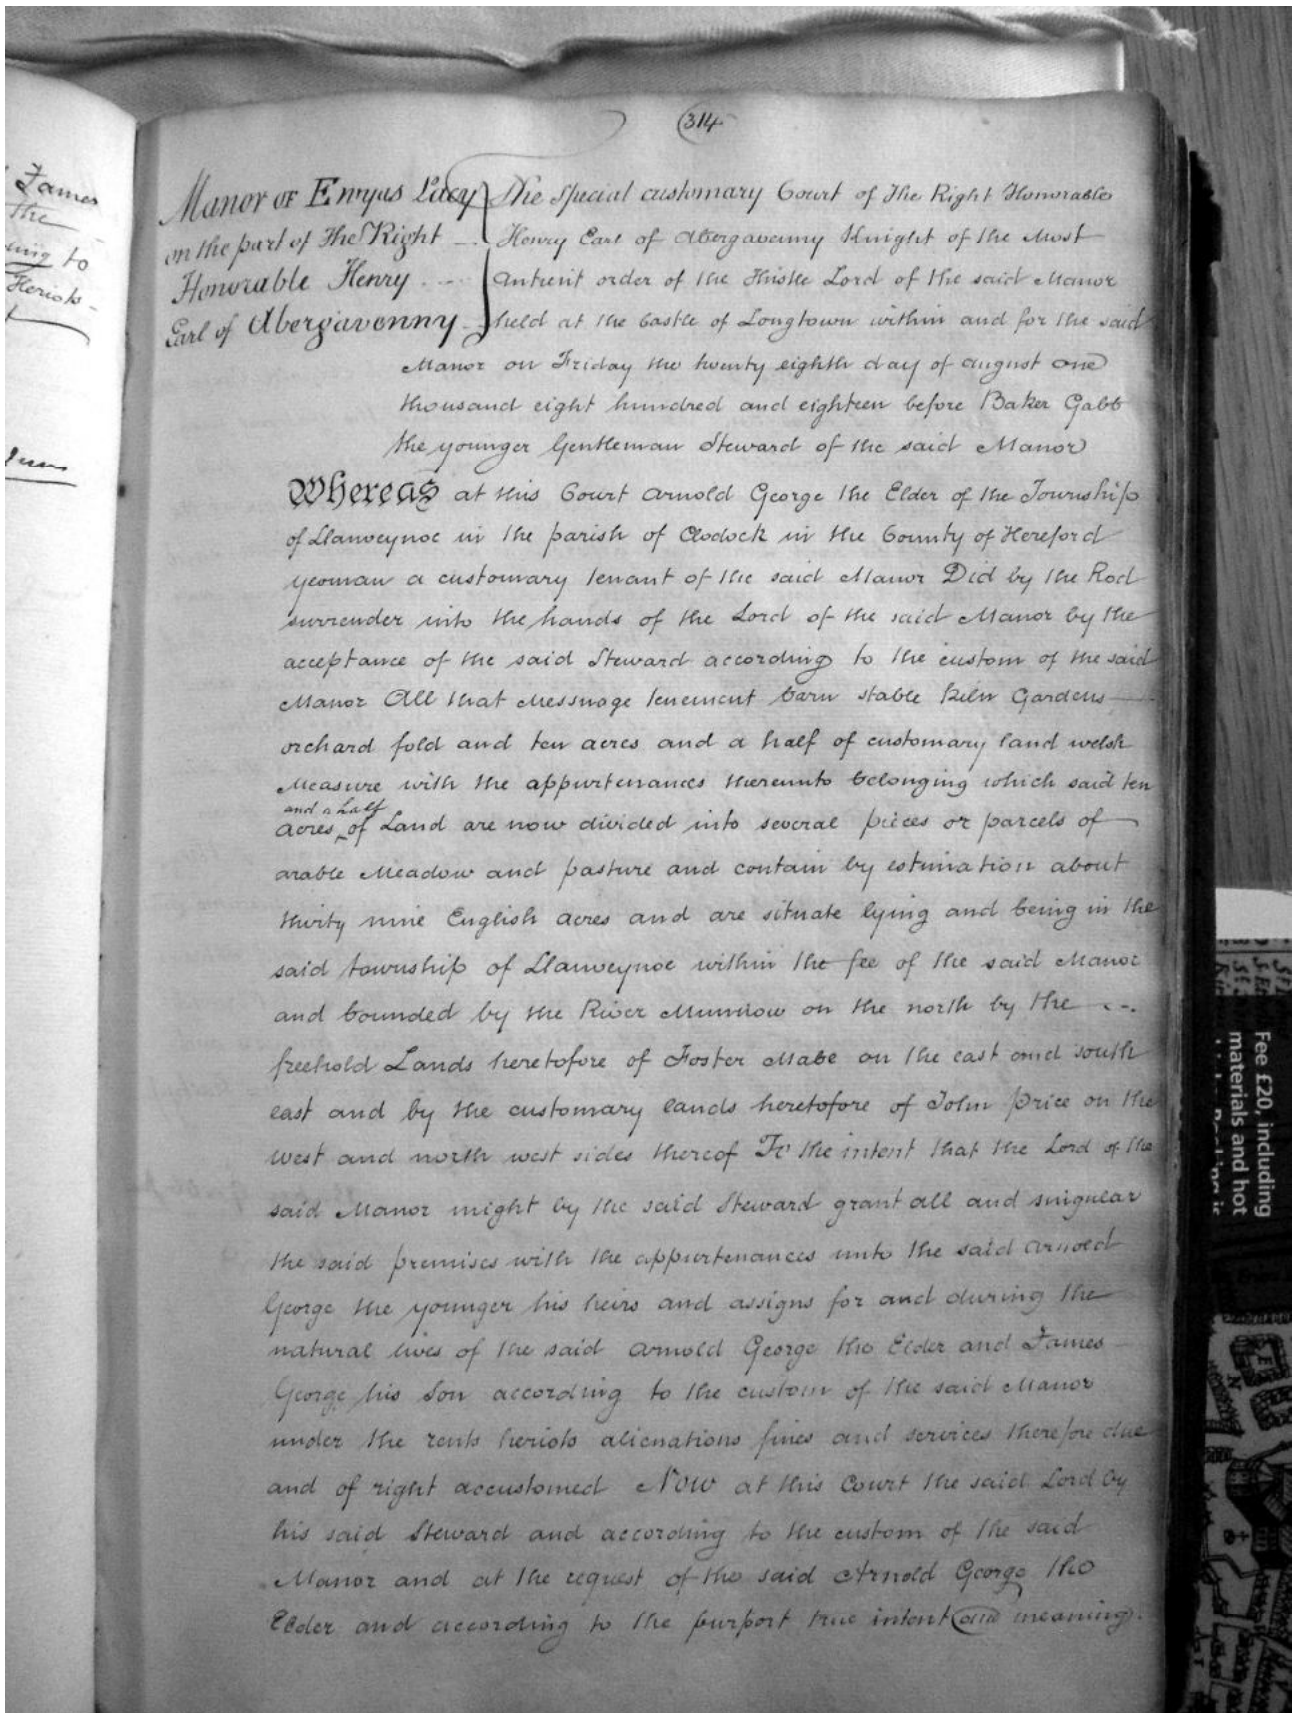 (314
James
the
to
Heriots
Manor OF Ewyas Lacy
on the part of The Right
Honorable Henry
Earl of Abergavenny
The Special customary Court of The Right Honorable
Henry Earl of Abergavenny Knight of the Most
Antient order of the Thistle Lord of the said Manor
held at the Castle of Longtown within and for the said
Manor on Friday the twenty eighth day of August one
thousand eight hundred and eighteen before Baker Gabb
the younger Gentleman Steward of the said Manor
Whereas at this Court Arnold George the Elder of the Township
of Llanveynoe in the parish of Clodock in the County of Hereford
yeoman a customary tenant of the said Manor Did by the Rod
surrender into the hands of the Lord of the said Manor by the
acceptance of the said Steward according to the custom of the said
Manor All that Messuage tenement barn stable Kiln Gardens
orchard fold and ten acres and a half of customary land welsh
Measure with the appurtenances thereunto belonging which said ten
and a half
acres of Land are now divided into several pieces or parcels of
arable Meadow and pasture and contain by estimation about
thirty nine English acres and are situate lying and being in the
said township of Llanveynoe within the fee of the said Manor
and bounded by the River Munnow on the north by the
freehold Lands heretofore of Foster Mabe on the east and south
east and by the customary lands heretofore of John Price on the
west and north west sides thereof To the intent that the Lord of the
said Manor might by the said Steward grant all and singular
the said premises with the appurtenances unto the said Arnold
George the younger his heirs and assigns for and during the
natural lives of the said Arnold George the Elder and James
George his Son according to the custom of the said Manor
under the rents heriots alienations fines and services therefore due
and of right accustomed Now at this Court the said Lord by
his said Steward and according to the custom of the said
Manor and at the request of the said Arnold George the
Elder and according to the purport true intent and meaning
Fee £20, including
materials and hot